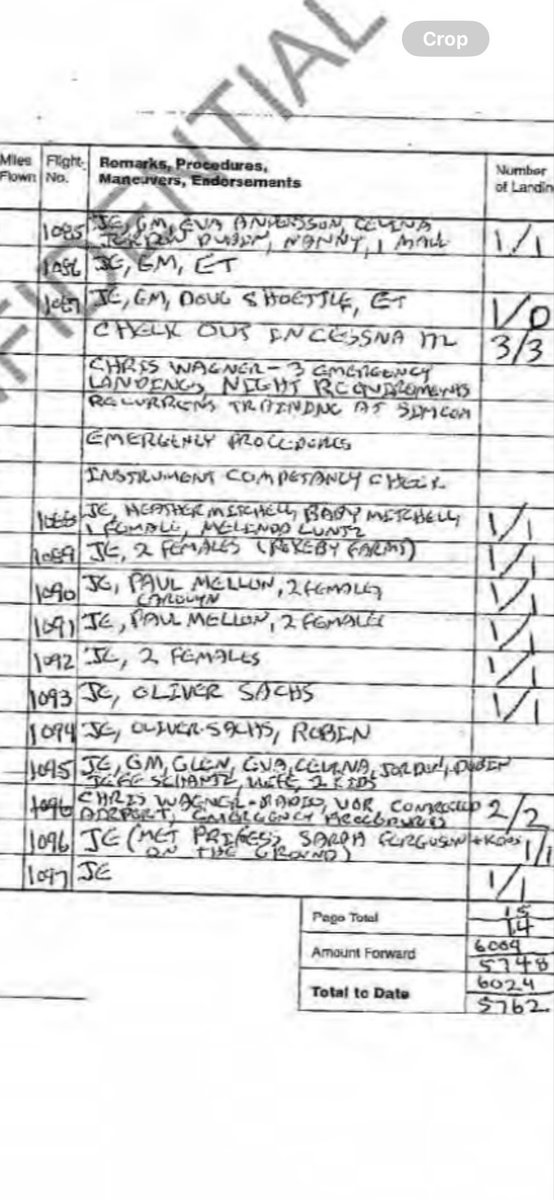 Crop
FIDENTIAL
Miles Flown
Flight No.
Remarks, Procedures,
Maneuvers, Endorsements
Number of Landin
1085 JE, GM, EVA ANDERSSON, CELINA
DUBIN, NANNY, 1 MALE 1/1
1086 JE, GM, ET
1087 JE, GM, DOUG SHOETTLE, ET 1/0
CHECK OUT IN CESSNA 3/3
CHRIS WAGNER - 3 EMERGENCY
LANDINGS, NIGHT REQUIREMENTS
RECURRENT TRAINING AT SIMCOM
EMERGENCY PROCEDURES
INSTRUMENT COMPETANCY CHECK
1088 JE, HEATHER MITCHELL, BABY MITCHELL 1/1
1 FEMALE, MELINDA LUNTZ
1089 JE, 2 FEMALES (ROKEBY FARMS) 1/1
1090 JE, PAUL MELLON, 2 FEMALES 1/1
CAROLYN
1091 JE, PAUL MELLON, 2 FEMALES 1/1
1092 JE, 2 FEMALES 1/1
1093 JE, OLIVER SACHS 1/1
1094 JE, OLIVER SACHS, ROBIN
1095 JE, GM, GLEN, EVA, CELINA, JORDAN, DUBIN
WIFE, 2 KIDS
1096 CHRIS WAGNER - RADIO, VOR, CONTROLLED 2/2
AIRPORT, EMERGENCY PROCEDURES
1096 JE (MET PRINCESS SARAH FERGUSON + KIDS 1/1
ON THE GROUND)
1097 JE 1/1
Page Total 15
14
Amount Forward 6009
5748
Total to Date 6024
5762